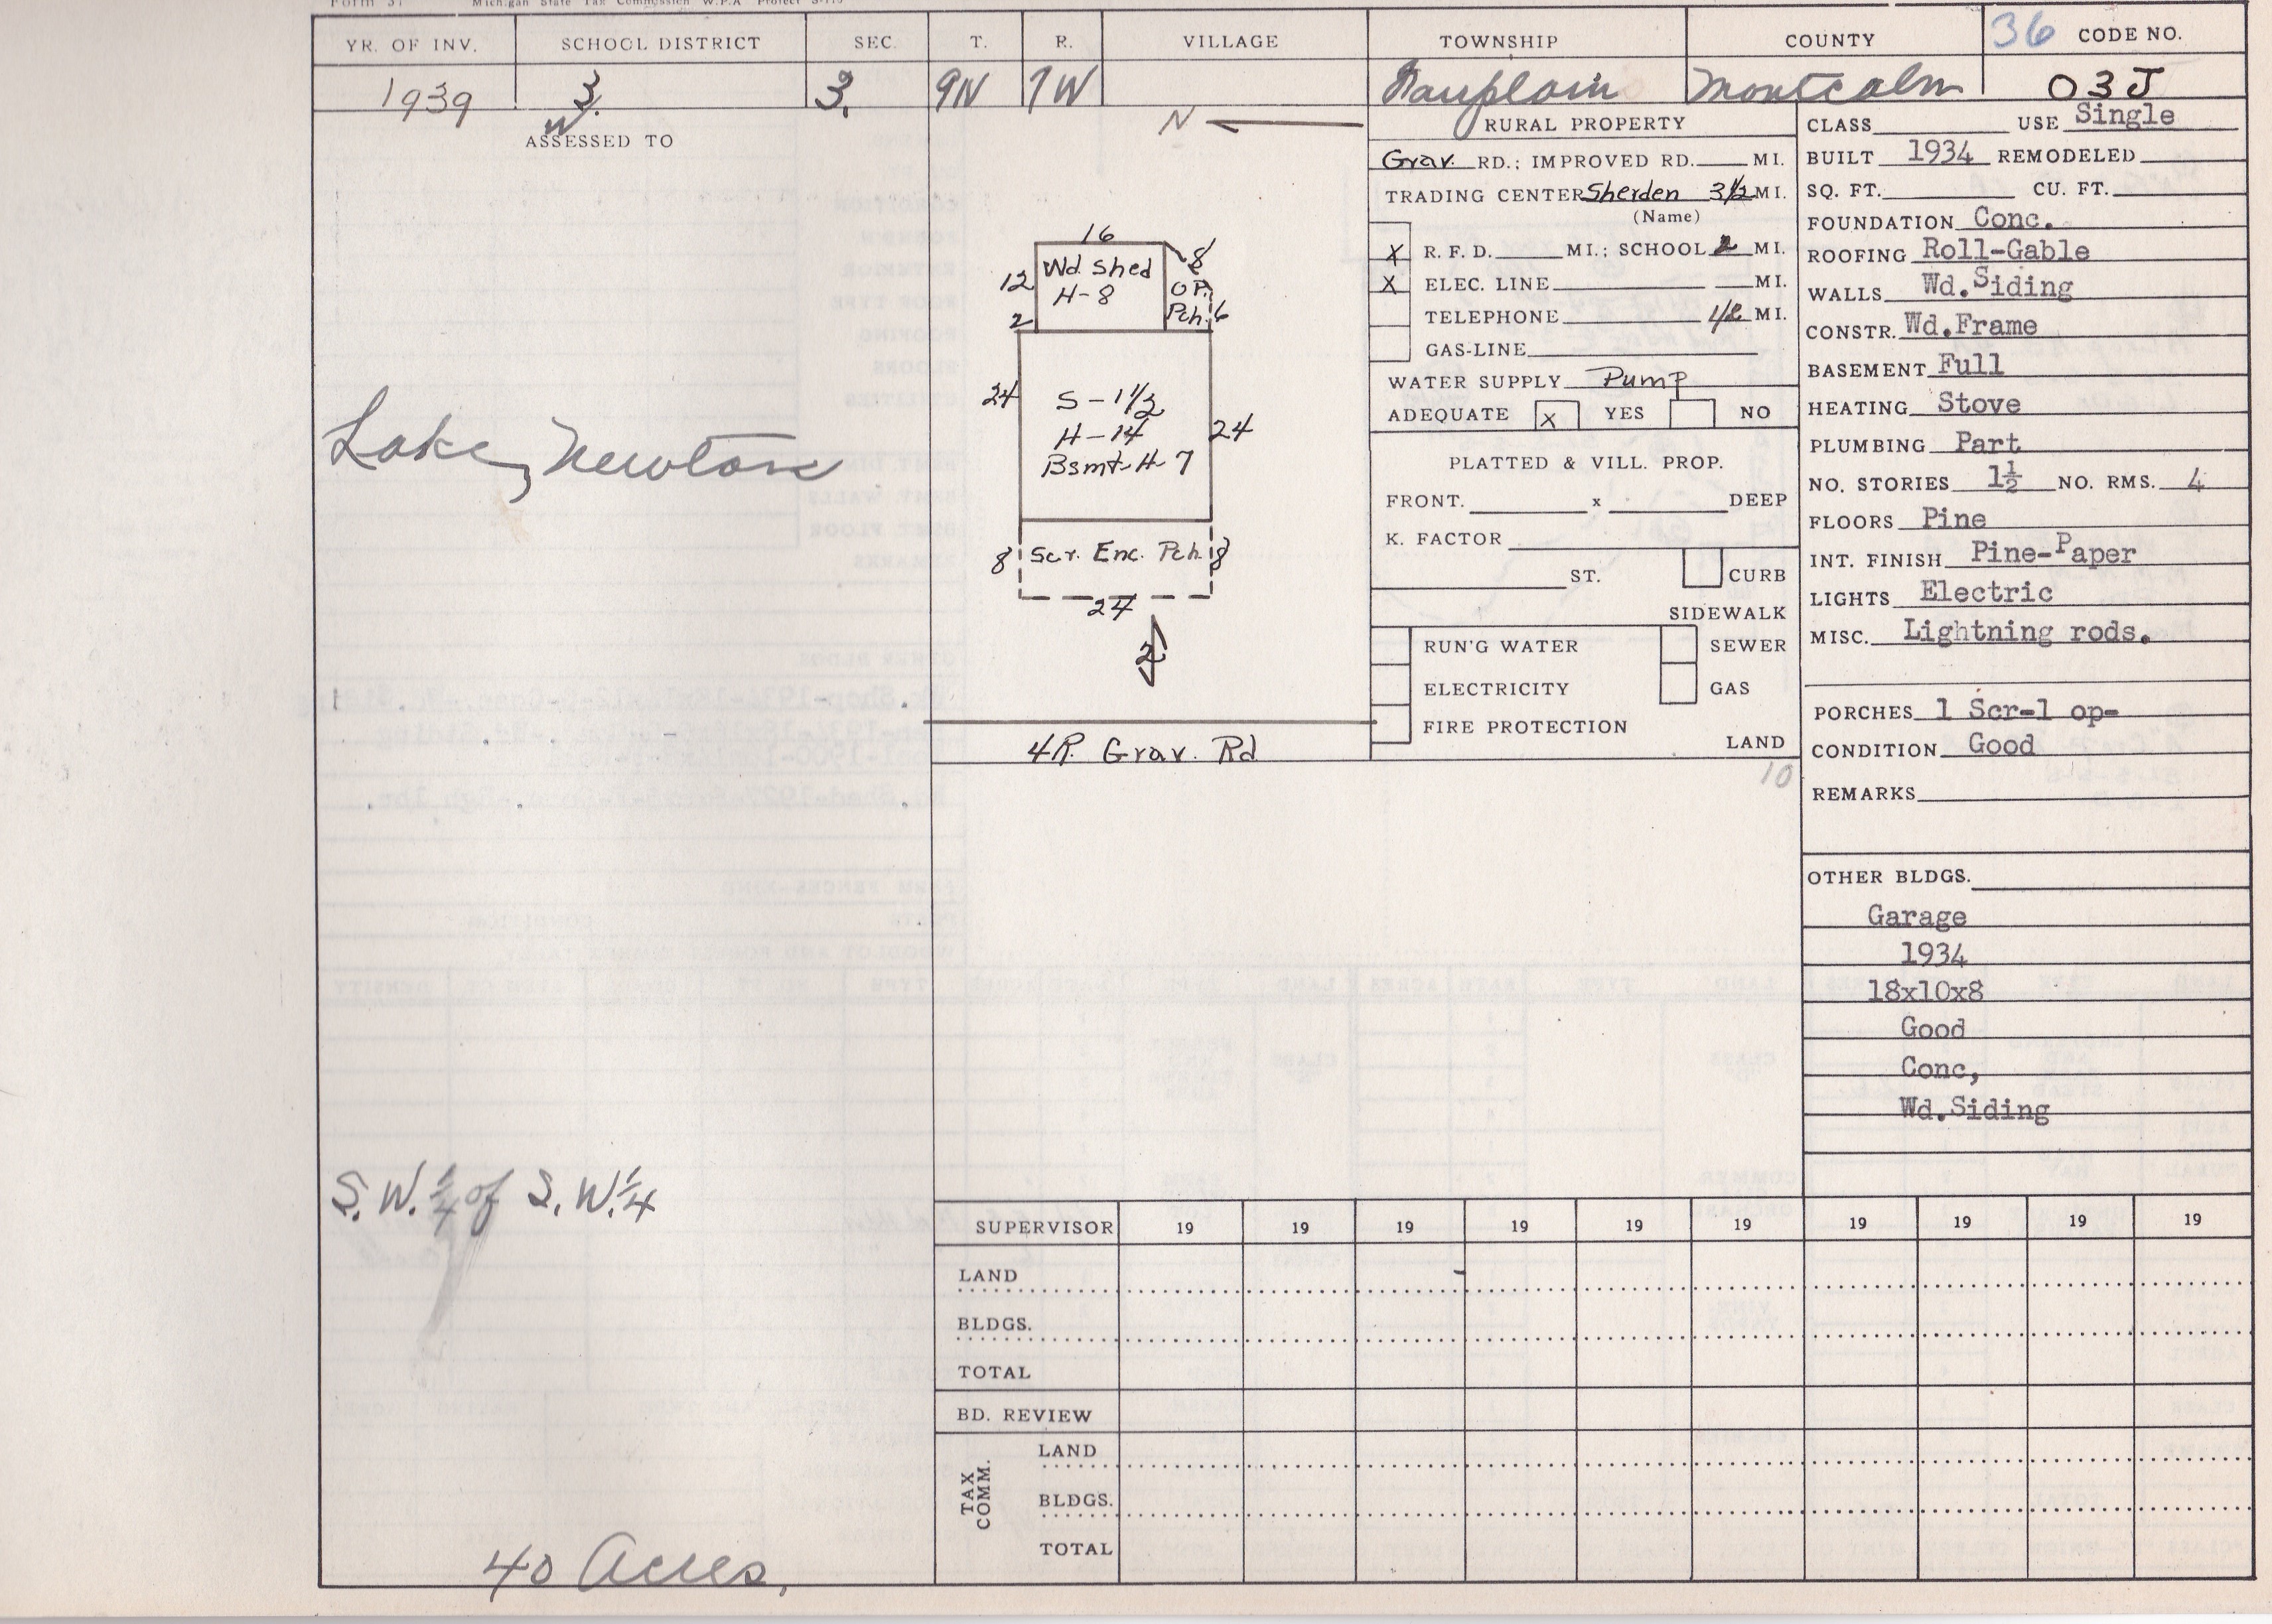 Form 37 Michigan State Tax Commission W.P.A Project S-119
YR. OF INV. SCHOOL DISTRICT SEC. T. R. VILLAGE TOWNSHIP COUNTY 36 CODE NO.
1939 3. 3. 9N 7W Fairplain Montcalm 03J
W.
ASSESSED TO
Lake, Newton
S.W. 1/4 of S.W. 1/4
40 Acres.
N
16
Wd. Shed
H-8
8
12
OP.
Pch.
6
2
24
S-1 1/2
H-14
Bsmt-H-7
24
8 Scr. Enc. Pch. 8
24
2
4R. Grav. Rd
RURAL PROPERTY
Grav. RD.; IMPROVED RD. MI.
TRADING CENTER Sherden 3 1/2 MI.
(Name)
X R. F. D. MI.; SCHOOL 2 MI.
X ELEC. LINE MI.
TELEPHONE 1/2 MI.
GAS-LINE
WATER SUPPLY Pump
ADEQUATE X YES NO
PLATTED & VILL. PROP.
FRONT. x DEEP
K. FACTOR
ST. CURB
SIDEWALK
RUN'G WATER SEWER
ELECTRICITY GAS
FIRE PROTECTION
LAND
10
CLASS USE Single
BUILT 1934 REMODELED
SQ. FT. CU. FT.
FOUNDATION Conc.
ROOFING Roll-Gable
WALLS Wd.Siding
CONSTR. Wd.Frame
BASEMENT Full
HEATING Stove
PLUMBING Part
NO. STORIES 1½ NO. RMS. 4
FLOORS Pine
INT. FINISH Pine-Paper
LIGHTS Electric
MISC. Lightning rods.
PORCHES 1 Scr-1 op-
CONDITION Good
REMARKS
OTHER BLDGS.
Garage
1934
18x10x8
Good
Conc,
Wd.Siding
SUPERVISOR 19 19 19 19 19 19 19 19 19 19
LAND
BLDGS.
TOTAL
BD. REVIEW
TAX COMM.
LAND
BLDGS.
TOTAL